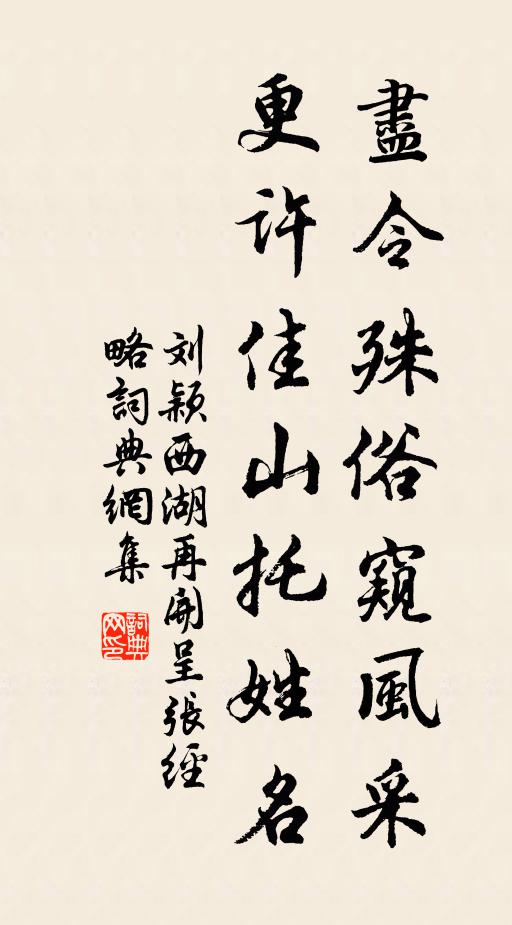 盡令殊俗窺風采
更許佳山托姓名
刘颖西湖再開呈張經
略詞典網集
詞典网印